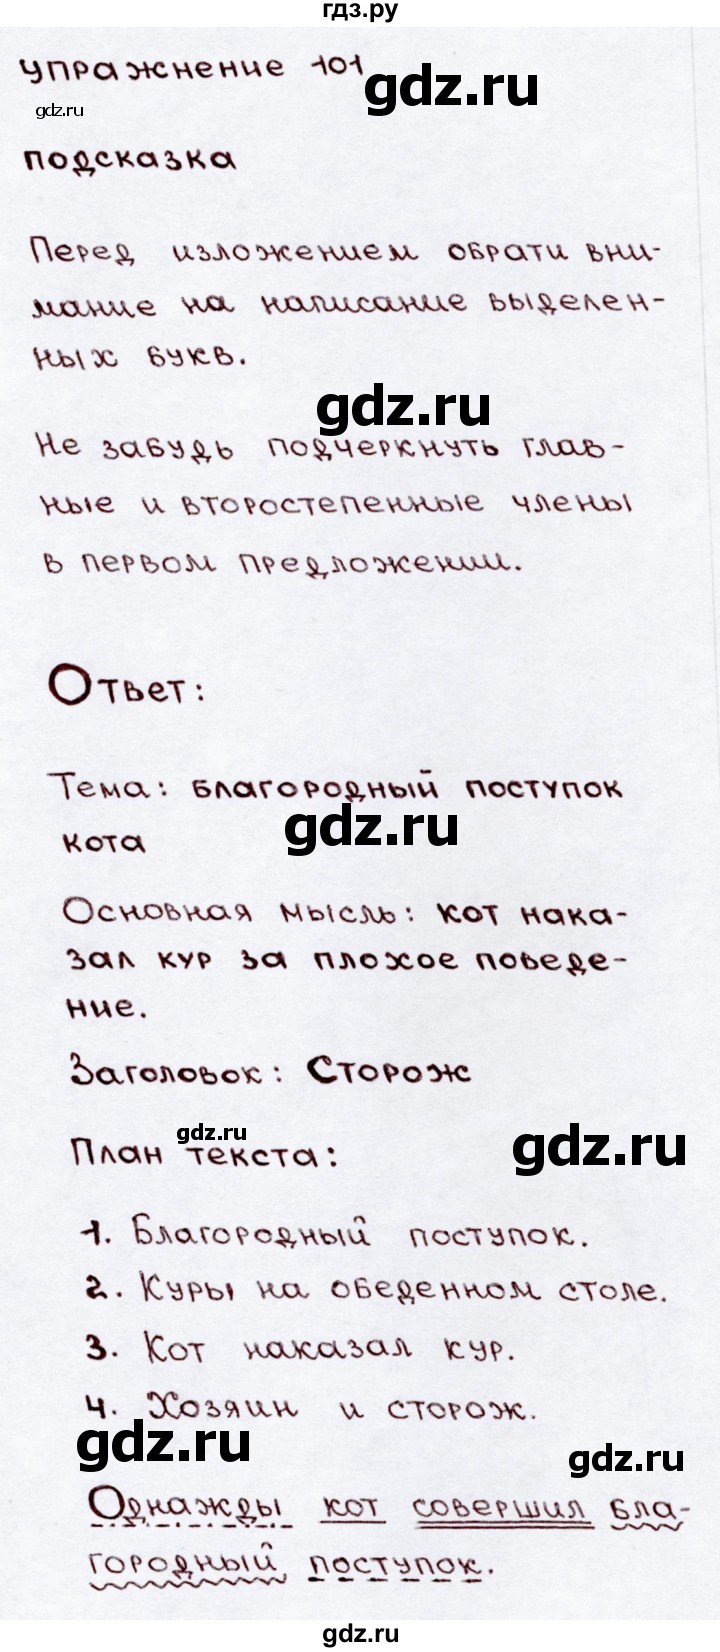 гдз.ру
упражнение 101
gdz.ru
gdz.ru
подсказка
Перед изложением обрати вни-
мание на написание выделен-
ных букв.
gdz.ru
Не забудь подчеркнуть глав-
ные и второстепенные члены
в первом предложении.
Ответ:
Тема: благородный поступок
gdz.ru
кота
Основная мысль: кот нака-
зал кур за плохое поведе-
ние.
Заголовок: Сторож
gdz.ru
gdz.ru
План текста:
1. Благородный поступок.
2. Куры на обеденном столе.
3. Кот наказал кур.
4. Хозяин и сторож.
gdz.ru
gdz.ru
Однажды кот совершил бла-
городный поступок.
gdz.ru